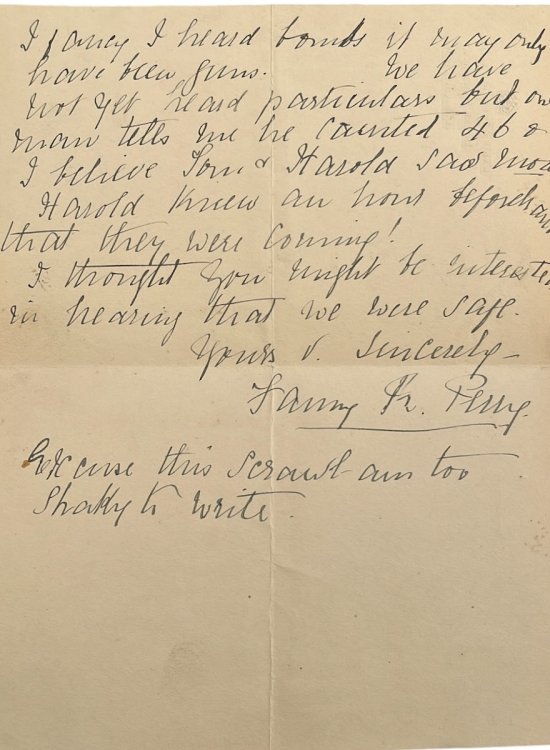 I fancy I heard bombs it may only
have been guns. We have
not yet heard particulars but one
man tells me he counted 46 &
I believe Tom & Harold saw
Harold knew an hour beforehand
that they were coming!
I thought you might be interested
in hearing that we were safe.
Yours v. sincerely
Fanny K. Perry.
Excuse this scrawl am too
shaky to write.